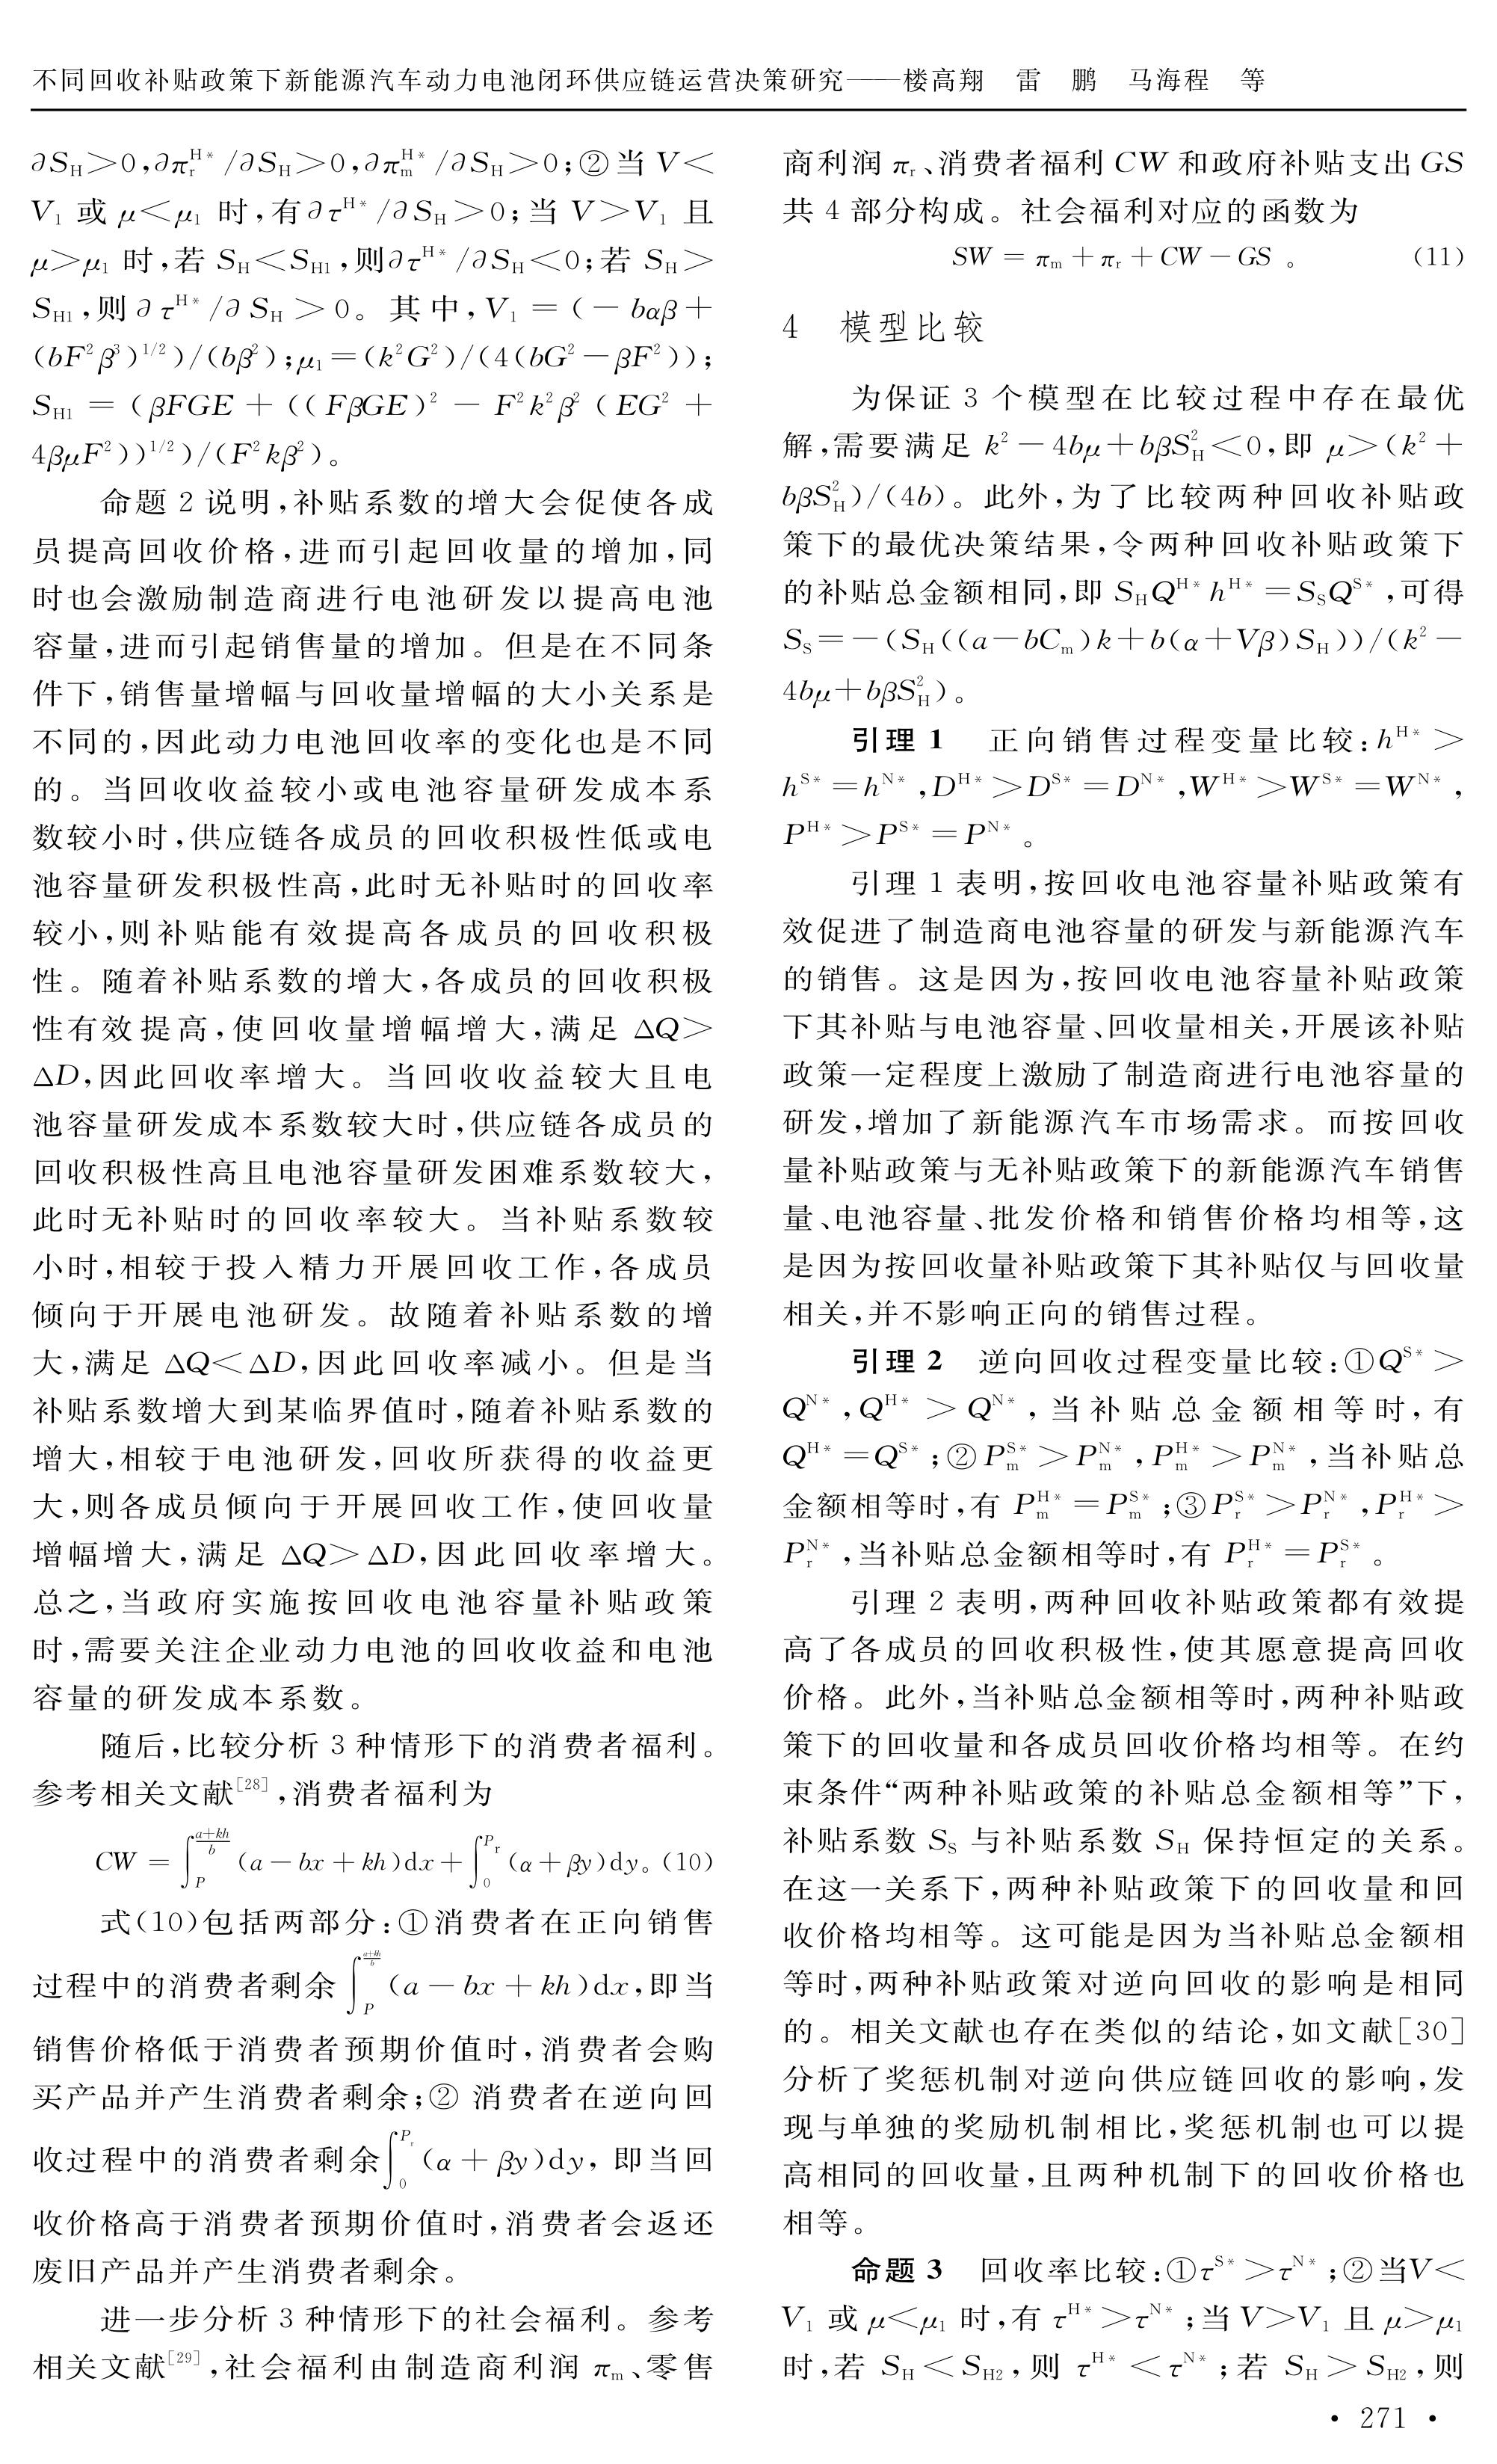 不同回收补贴政策下新能源汽车动力电池闭环供应链运营决策研究——楼高翔　雷　鹏　马海程　等
∂S_H＞0,∂π_r^{H*}/∂S_H＞0,∂π_m^{H*}/∂S_H＞0;②当 V＜
V_1 或 μ＜μ_1 时,有∂τ^{H*}/∂S_H＞0;当 V＞V_1 且
μ＞μ_1 时,若 S_H＜S_{H1},则∂τ^{H*}/∂S_H＜0;若 S_H＞
S_{H1},则∂τ^{H*}/∂S_H＞0。其中,V_1=(-bαβ+
(bF^2β^3)^{1/2})/(bβ^2);μ_1=(k^2G^2)/(4(bG^2-βF^2));
S_{H1}=(βFGE+((FβGE)^2-F^2k^2β^2(EG^2+
4βμF^2))^{1/2})/(F^2kβ^2)。
命题 2 说明,补贴系数的增大会促使各成
员提高回收价格,进而引起回收量的增加,同
时也会激励制造商进行电池研发以提高电池
容量,进而引起销售量的增加。但是在不同条
件下,销售量增幅与回收量增幅的大小关系是
不同的,因此动力电池回收率的变化也是不同
的。当回收收益较小或电池容量研发成本系
数较小时,供应链各成员的回收积极性低或电
池容量研发积极性高,此时无补贴时的回收率
较小,则补贴能有效提高各成员的回收积极
性。随着补贴系数的增大,各成员的回收积极
性有效提高,使回收量增幅增大,满足 ΔQ＞
ΔD,因此回收率增大。当回收收益较大且电
池容量研发成本系数较大时,供应链各成员的
回收积极性高且电池容量研发困难系数较大,
此时无补贴时的回收率较大。当补贴系数较
小时,相较于投入精力开展回收工作,各成员
倾向于开展电池研发。故随着补贴系数的增
大,满足 ΔQ＜ΔD,因此回收率减小。但是当
补贴系数增大到某临界值时,随着补贴系数的
增大,相较于电池研发,回收所获得的收益更
大,则各成员倾向于开展回收工作,使回收量
增幅增大,满足 ΔQ＞ΔD,因此回收率增大。
总之,当政府实施按回收电池容量补贴政策
时,需要关注企业动力电池的回收收益和电池
容量的研发成本系数。
随后,比较分析 3 种情形下的消费者福利。
参考相关文献^{[28]},消费者福利为
CW=∫_P^{(a+kh)/b}(a-bx+kh)dx+∫_0^{P_r}(α+βy)dy。(10)
式(10)包括两部分:①消费者在正向销售
过程中的消费者剩余∫_P^{(a+kh)/b}(a-bx+kh)dx,即当
销售价格低于消费者预期价值时,消费者会购
买产品并产生消费者剩余;② 消费者在逆向回
收过程中的消费者剩余∫_0^{P_r}(α+βy)dy,即当回
收价格高于消费者预期价值时,消费者会返还
废旧产品并产生消费者剩余。
进一步分析 3 种情形下的社会福利。参考
相关文献^{[29]},社会福利由制造商利润 π_m、零售
商利润 π_r、消费者福利 CW 和政府补贴支出 GS
共 4 部分构成。社会福利对应的函数为
SW=π_m+π_r+CW-GS 。　(11)
4　模型比较
为保证 3 个模型在比较过程中存在最优
解,需要满足 k^2-4bμ+bβS_H^2＜0,即 μ＞(k^2+
bβS_H^2)/(4b)。此外,为了比较两种回收补贴政
策下的最优决策结果,令两种回收补贴政策下
的补贴总金额相同,即 S_HQ^{H*}h^{H*}=S_SQ^{S*},可得
S_S=-(S_H((a-bC_m)k+b(α+Vβ)S_H))/(k^2-
4bμ+bβS_H^2)。
引理 1　正向销售过程变量比较:h^{H*}＞
h^{S*}=h^{N*},D^{H*}＞D^{S*}=D^{N*},W^{H*}＞W^{S*}=W^{N*},
P^{H*}＞P^{S*}=P^{N*}。
引理 1 表明,按回收电池容量补贴政策有
效促进了制造商电池容量的研发与新能源汽车
的销售。这是因为,按回收电池容量补贴政策
下其补贴与电池容量、回收量相关,开展该补贴
政策一定程度上激励了制造商进行电池容量的
研发,增加了新能源汽车市场需求。而按回收
量补贴政策与无补贴政策下的新能源汽车销售
量、电池容量、批发价格和销售价格均相等,这
是因为按回收量补贴政策下其补贴仅与回收量
相关,并不影响正向的销售过程。
引理 2　逆向回收过程变量比较:①Q^{S*}＞
Q^{N*},Q^{H*}＞Q^{N*},当补贴总金额相等时,有
Q^{H*}=Q^{S*};②P_m^{S*}＞P_m^{N*},P_m^{H*}＞P_m^{N*},当补贴总
金额相等时,有 P_m^{H*}=P_m^{S*};③P_r^{S*}＞P_r^{N*},P_r^{H*}＞
P_r^{N*},当补贴总金额相等时,有 P_r^{H*}=P_r^{S*}。
引理 2 表明,两种回收补贴政策都有效提
高了各成员的回收积极性,使其愿意提高回收
价格。此外,当补贴总金额相等时,两种补贴政
策下的回收量和各成员回收价格均相等。在约
束条件“两种补贴政策的补贴总金额相等”下,
补贴系数 S_S 与补贴系数 S_H 保持恒定的关系。
在这一关系下,两种补贴政策下的回收量和回
收价格均相等。这可能是因为当补贴总金额相
等时,两种补贴政策对逆向回收的影响是相同
的。相关文献也存在类似的结论,如文献[30]
分析了奖惩机制对逆向供应链回收的影响,发
现与单独的奖励机制相比,奖惩机制也可以提
高相同的回收量,且两种机制下的回收价格也
相等。
命题 3　回收率比较:①τ^{S*}＞τ^{N*};②当V＜
V_1 或 μ＜μ_1 时,有 τ^{H*}＞τ^{N*};当 V＞V_1 且 μ＞μ_1
时,若 S_H＜S_{H2},则 τ^{H*}＜τ^{N*};若 S_H＞S_{H2},则
· 271 ·